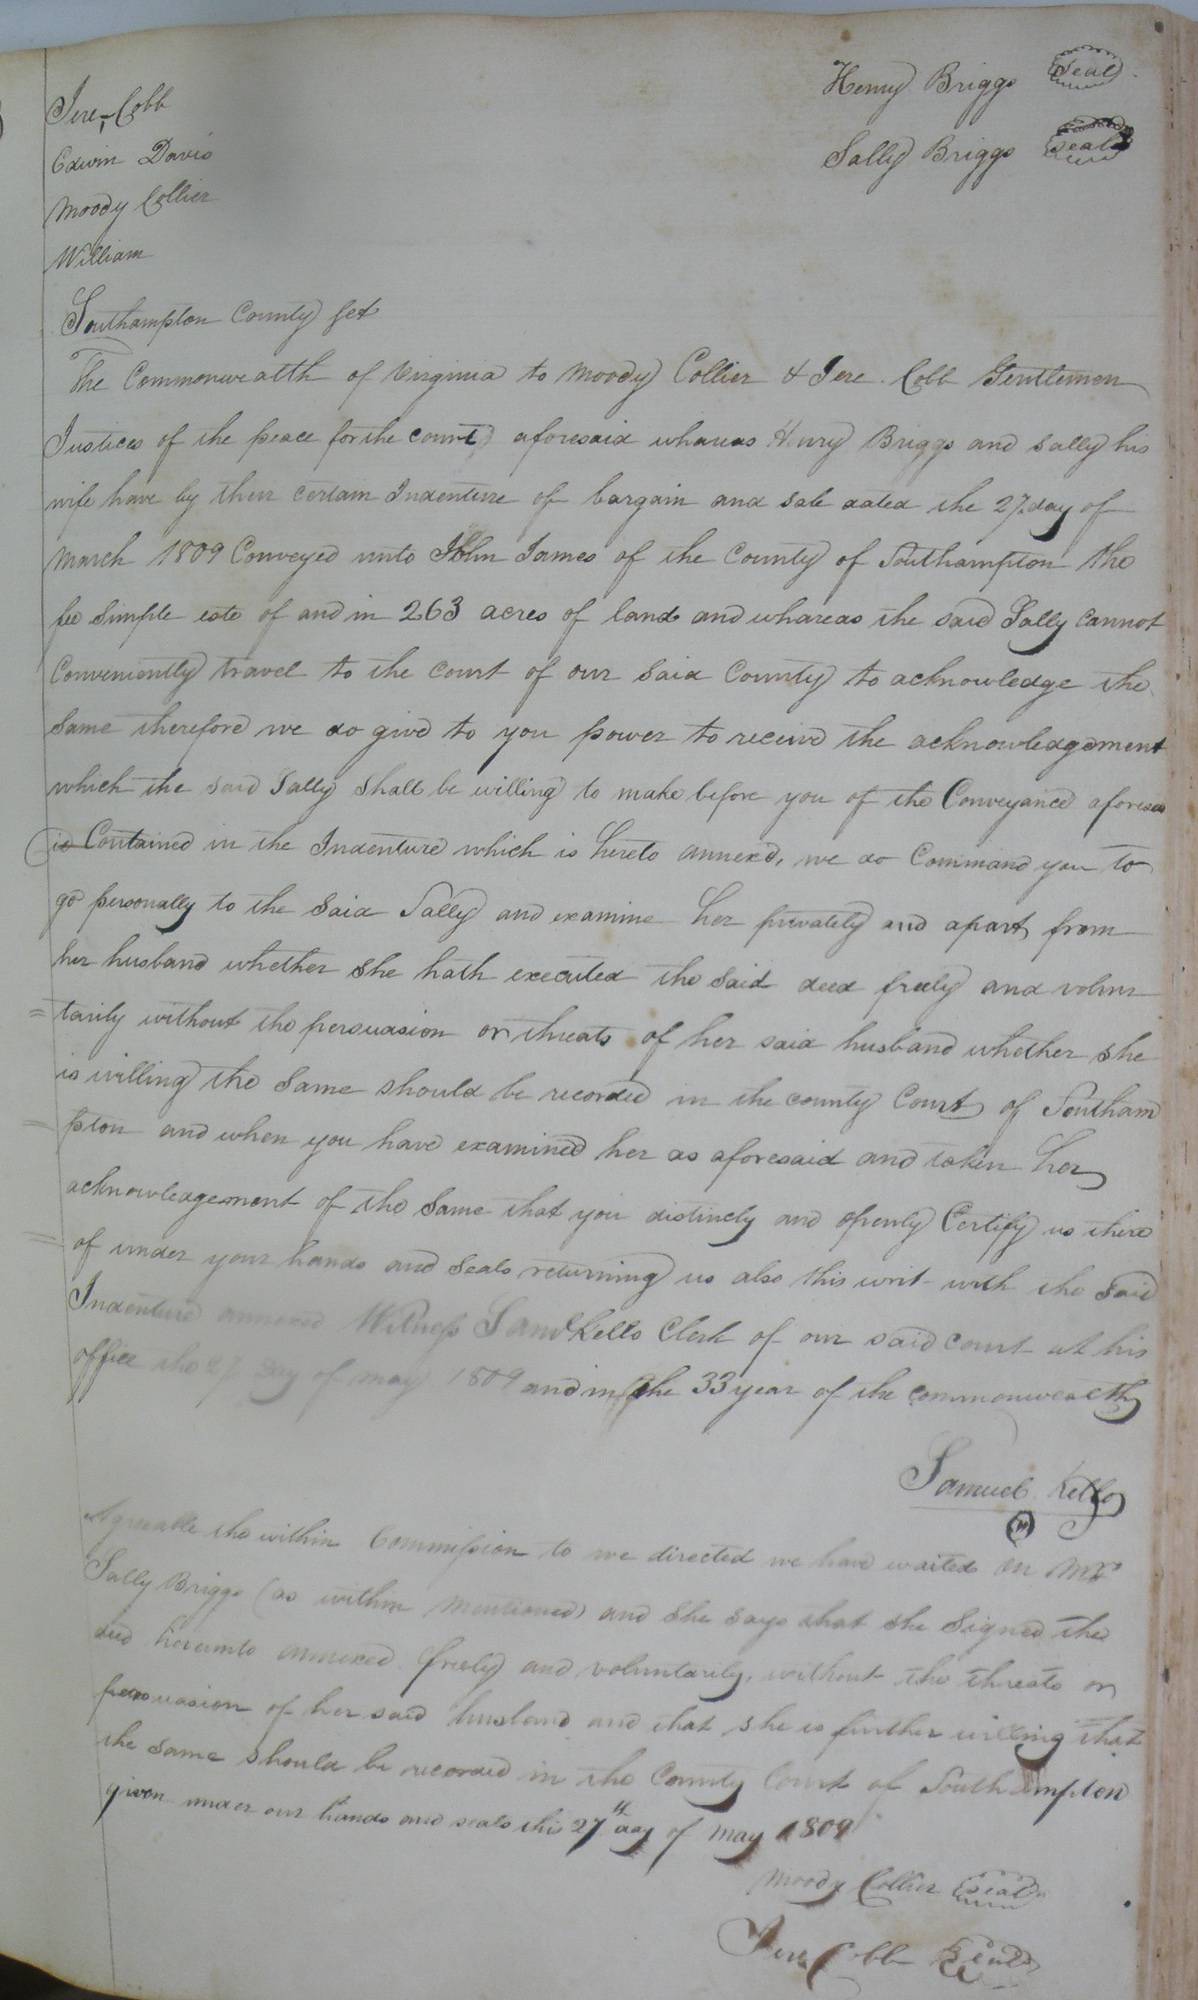 Henry Briggs Seal
Jere. Cobb
Sally Briggs Seal
Edwin Davis
Moody Collier
William
Southampton County Sct
The Commonwealth of Virginia to Moody Collier & Jere. Cobb Gentlemen
Justices of the peace for the county aforesaid whareas Henry Briggs and Sally his
wife have by their certain Indenture of bargain and sale dated the 27 day of
March 1809 Conveyed unto John James of the County of Southampton the
fee simple este of and in 263 acres of land and whareas the said Sally cannot
Conveniently travel to the court of our said County to acknowledge the
same therefore we do give to you power to receive the acknowledgement
which the said Sally shall be willing to make before you of the Conveyance aforesa
is Contained in the Indenture which is hereto annexd, we do Command you to
go personally to the said Sally and examine her privately and apart from
her husband whether she hath executed the said deed freely and volun
tarily without the persuasion or threats of her said husband whether she
is willing the same should be recorded in the county Court of Southam
pton and when you have examined her as aforesaid and taken her
acknowledgement of the same that you distinctly and openly Certify us there
of under your hands and seals returning us also this writ with the said
Indenture annexed Witness Saml Kello Clerk of our said court at his
office the 27 day of may 1809 and in the 33 year of the commonwealth
Samuel Kello
Agreeable the within Commission to we directed we have waited on Mrs
Sally Briggs (as within mentioned) and she says that she signed the
deed hereunto annexed freely and voluntarily, without the threats or
persuasion of her said husband and that she is further willing that
the same should be recorded in the County Court of Southampton
given under our hands and seals this 27th day of may 1809
Moody Collier Seal
Jere. Cobb Seal